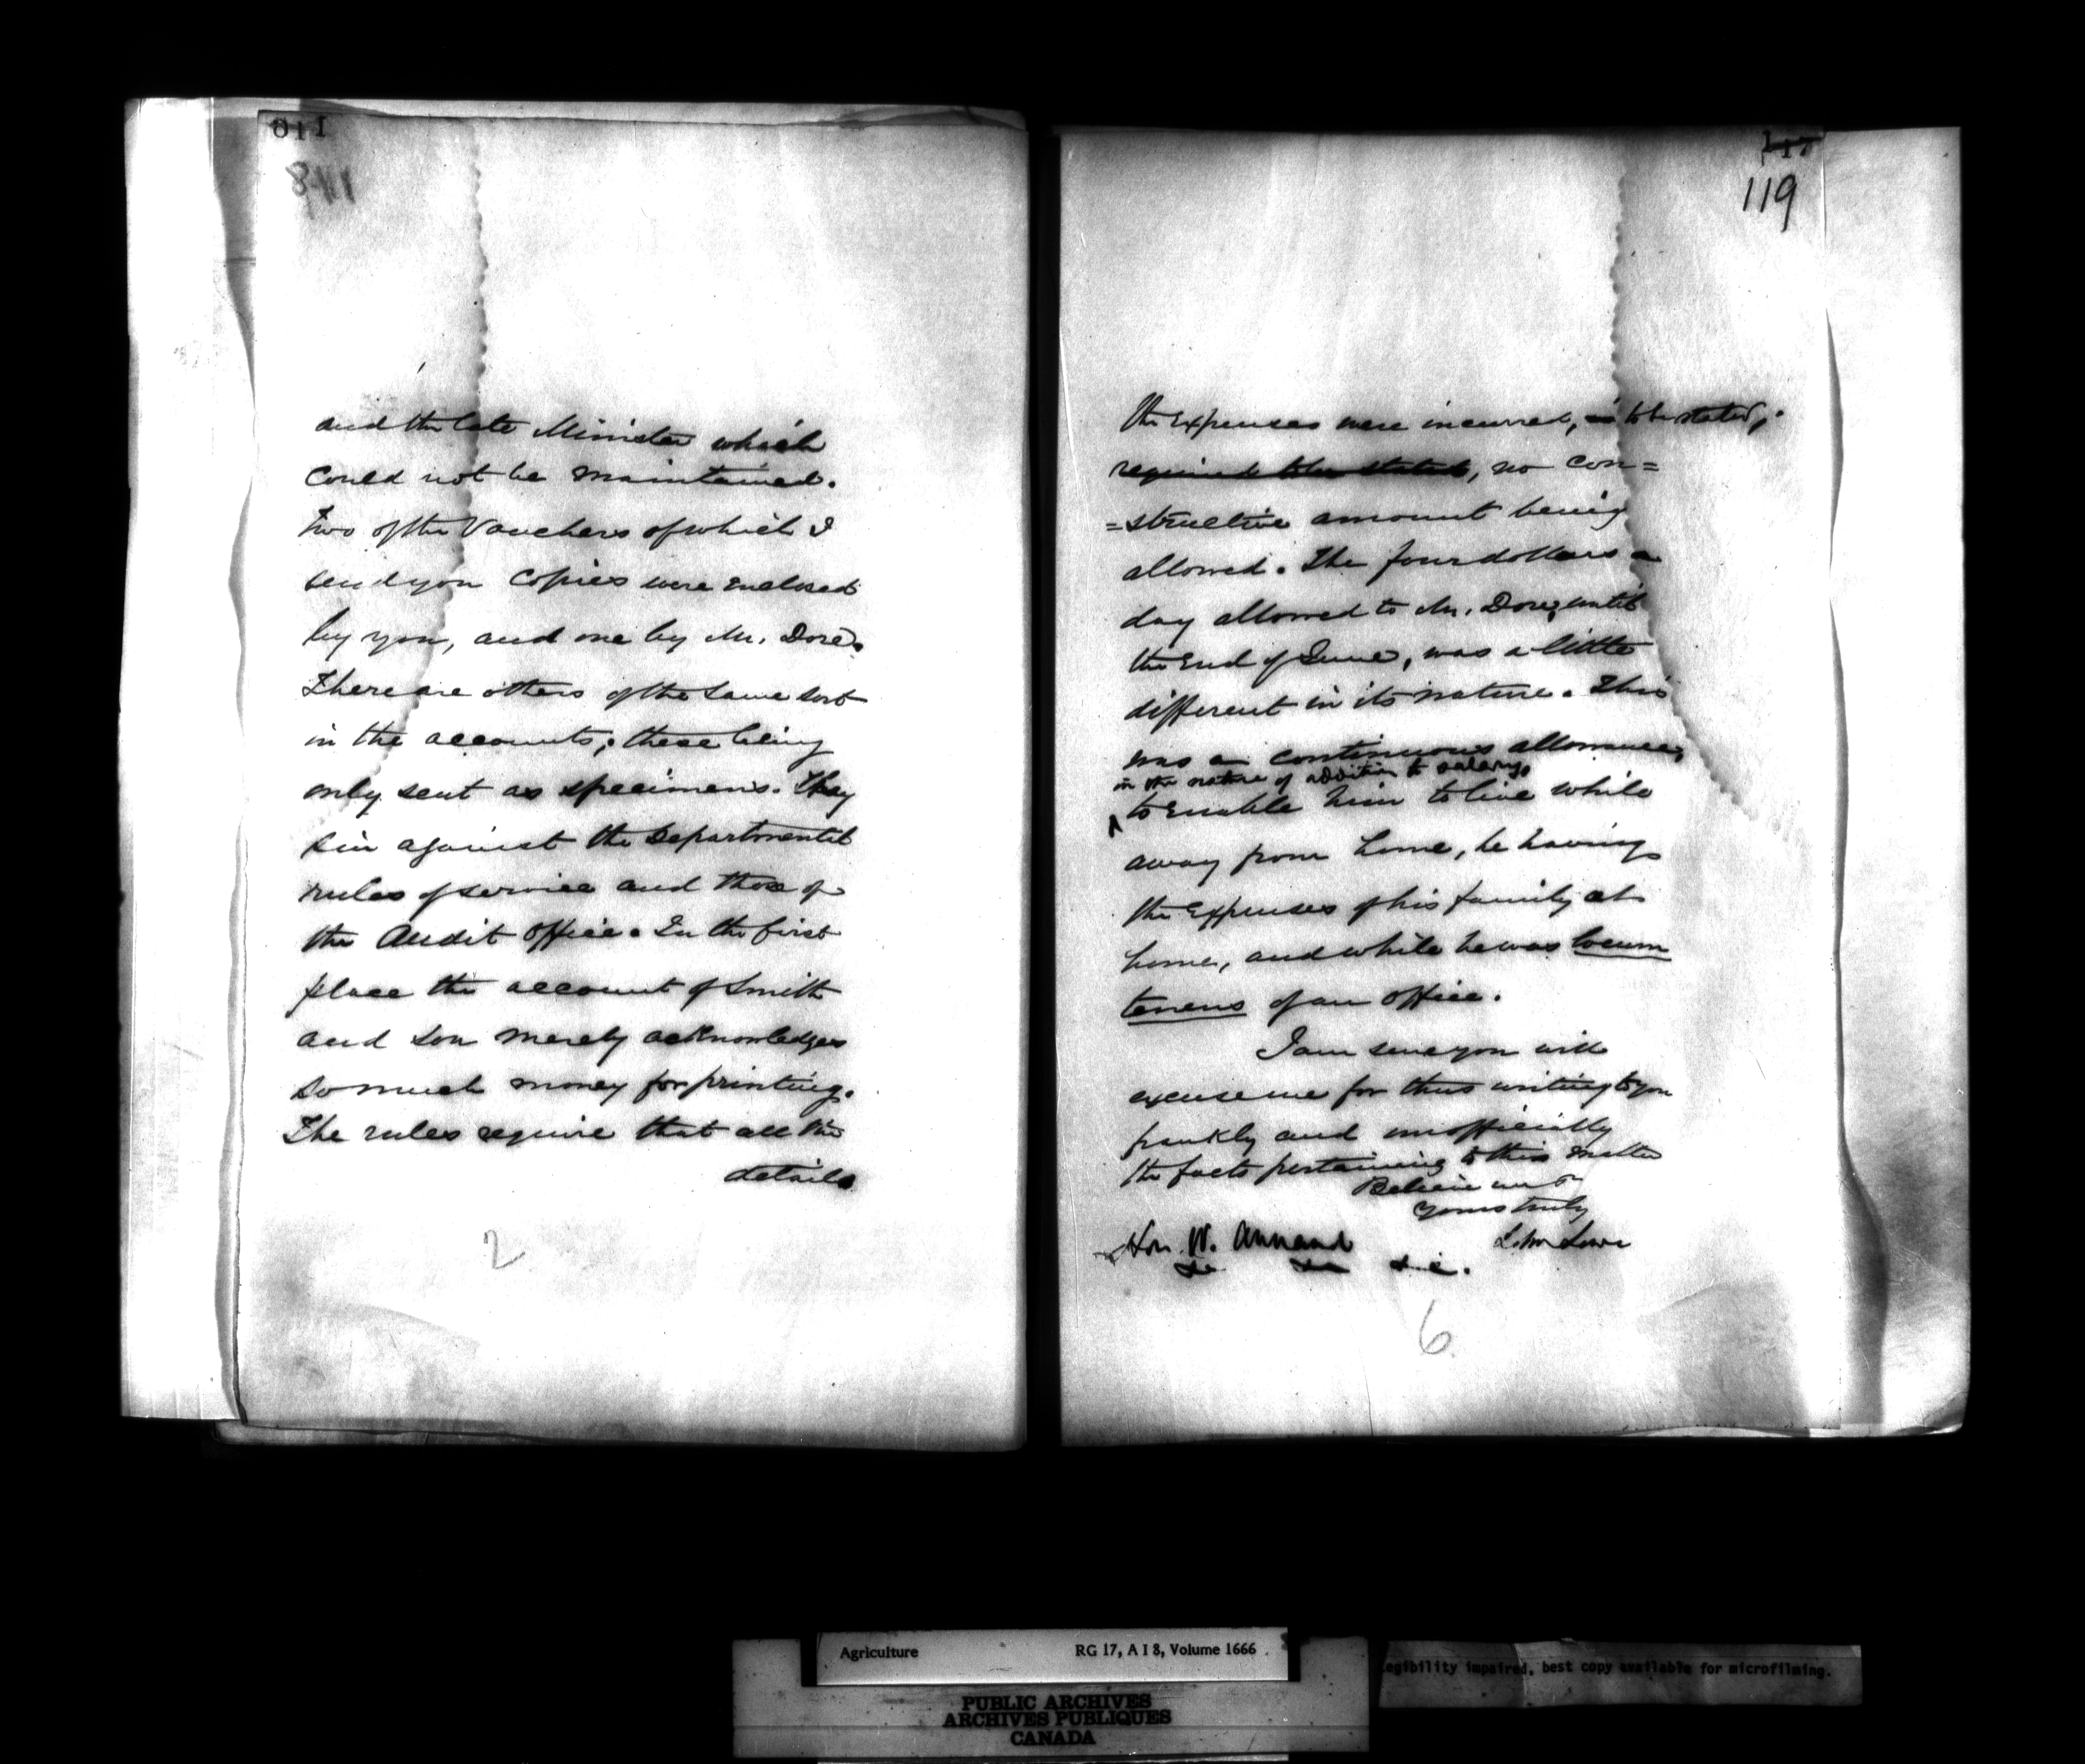 and the late Minister which
could not be maintained.
Two of the Vouchers of which I
send you Copies were enclosed
by you, and one by Mr. Dore.
There are others of the same sort
in the accounts; these being
only sent as specimens. They
sin against the Departmental
rules of service and those of
the Audit Office. In the first
place the account of Smith
and Son merely acknowledges
so much money for printing.
The rules require that all the
details
2
119
the Expenses were incurred, to be stated,
required to be stated, no con=
=structive amount being
allowed. The four dollars a
day allowed to Mr. Dore, until
the End of June, was a little
different in its nature. This
was a continuous allowance,
in the nature of addition to salary,
to Enable him to live while
away from home, he having
the Expenses of his family at
home, and while he was locum
tenens of an office.
I am sure you will
excuse me for thus writing to you
frankly and unofficially
the facts pertaining to this matter
Believe me
Yours truly
John Lowe
Hon. W. Annand
&c &c &c.
6
Agriculture RG 17, A I 8, Volume 1666
egibility impaired, best copy available for microfilming.
PUBLIC ARCHIVES
ARCHIVES PUBLIQUES
CANADA